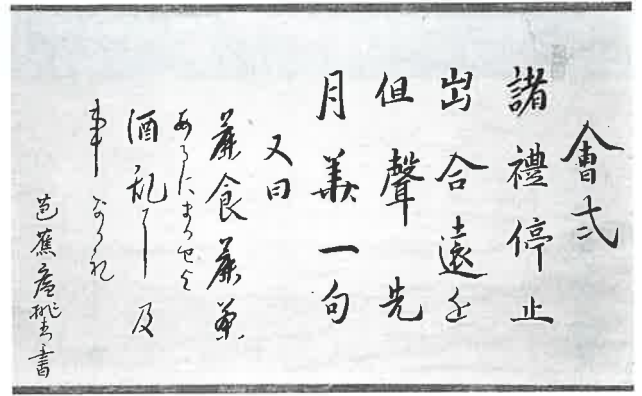 會式
諸禮停止
出合遠近
但聲先
月華一句
又曰
麁食麁茶
あるにまかせよ
酒乱に及
事なかれ
芭蕉庵桃青書